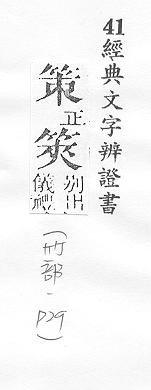 41 經典文字辨證書
策 正
筴 別出儀禮
(竹部.P29)